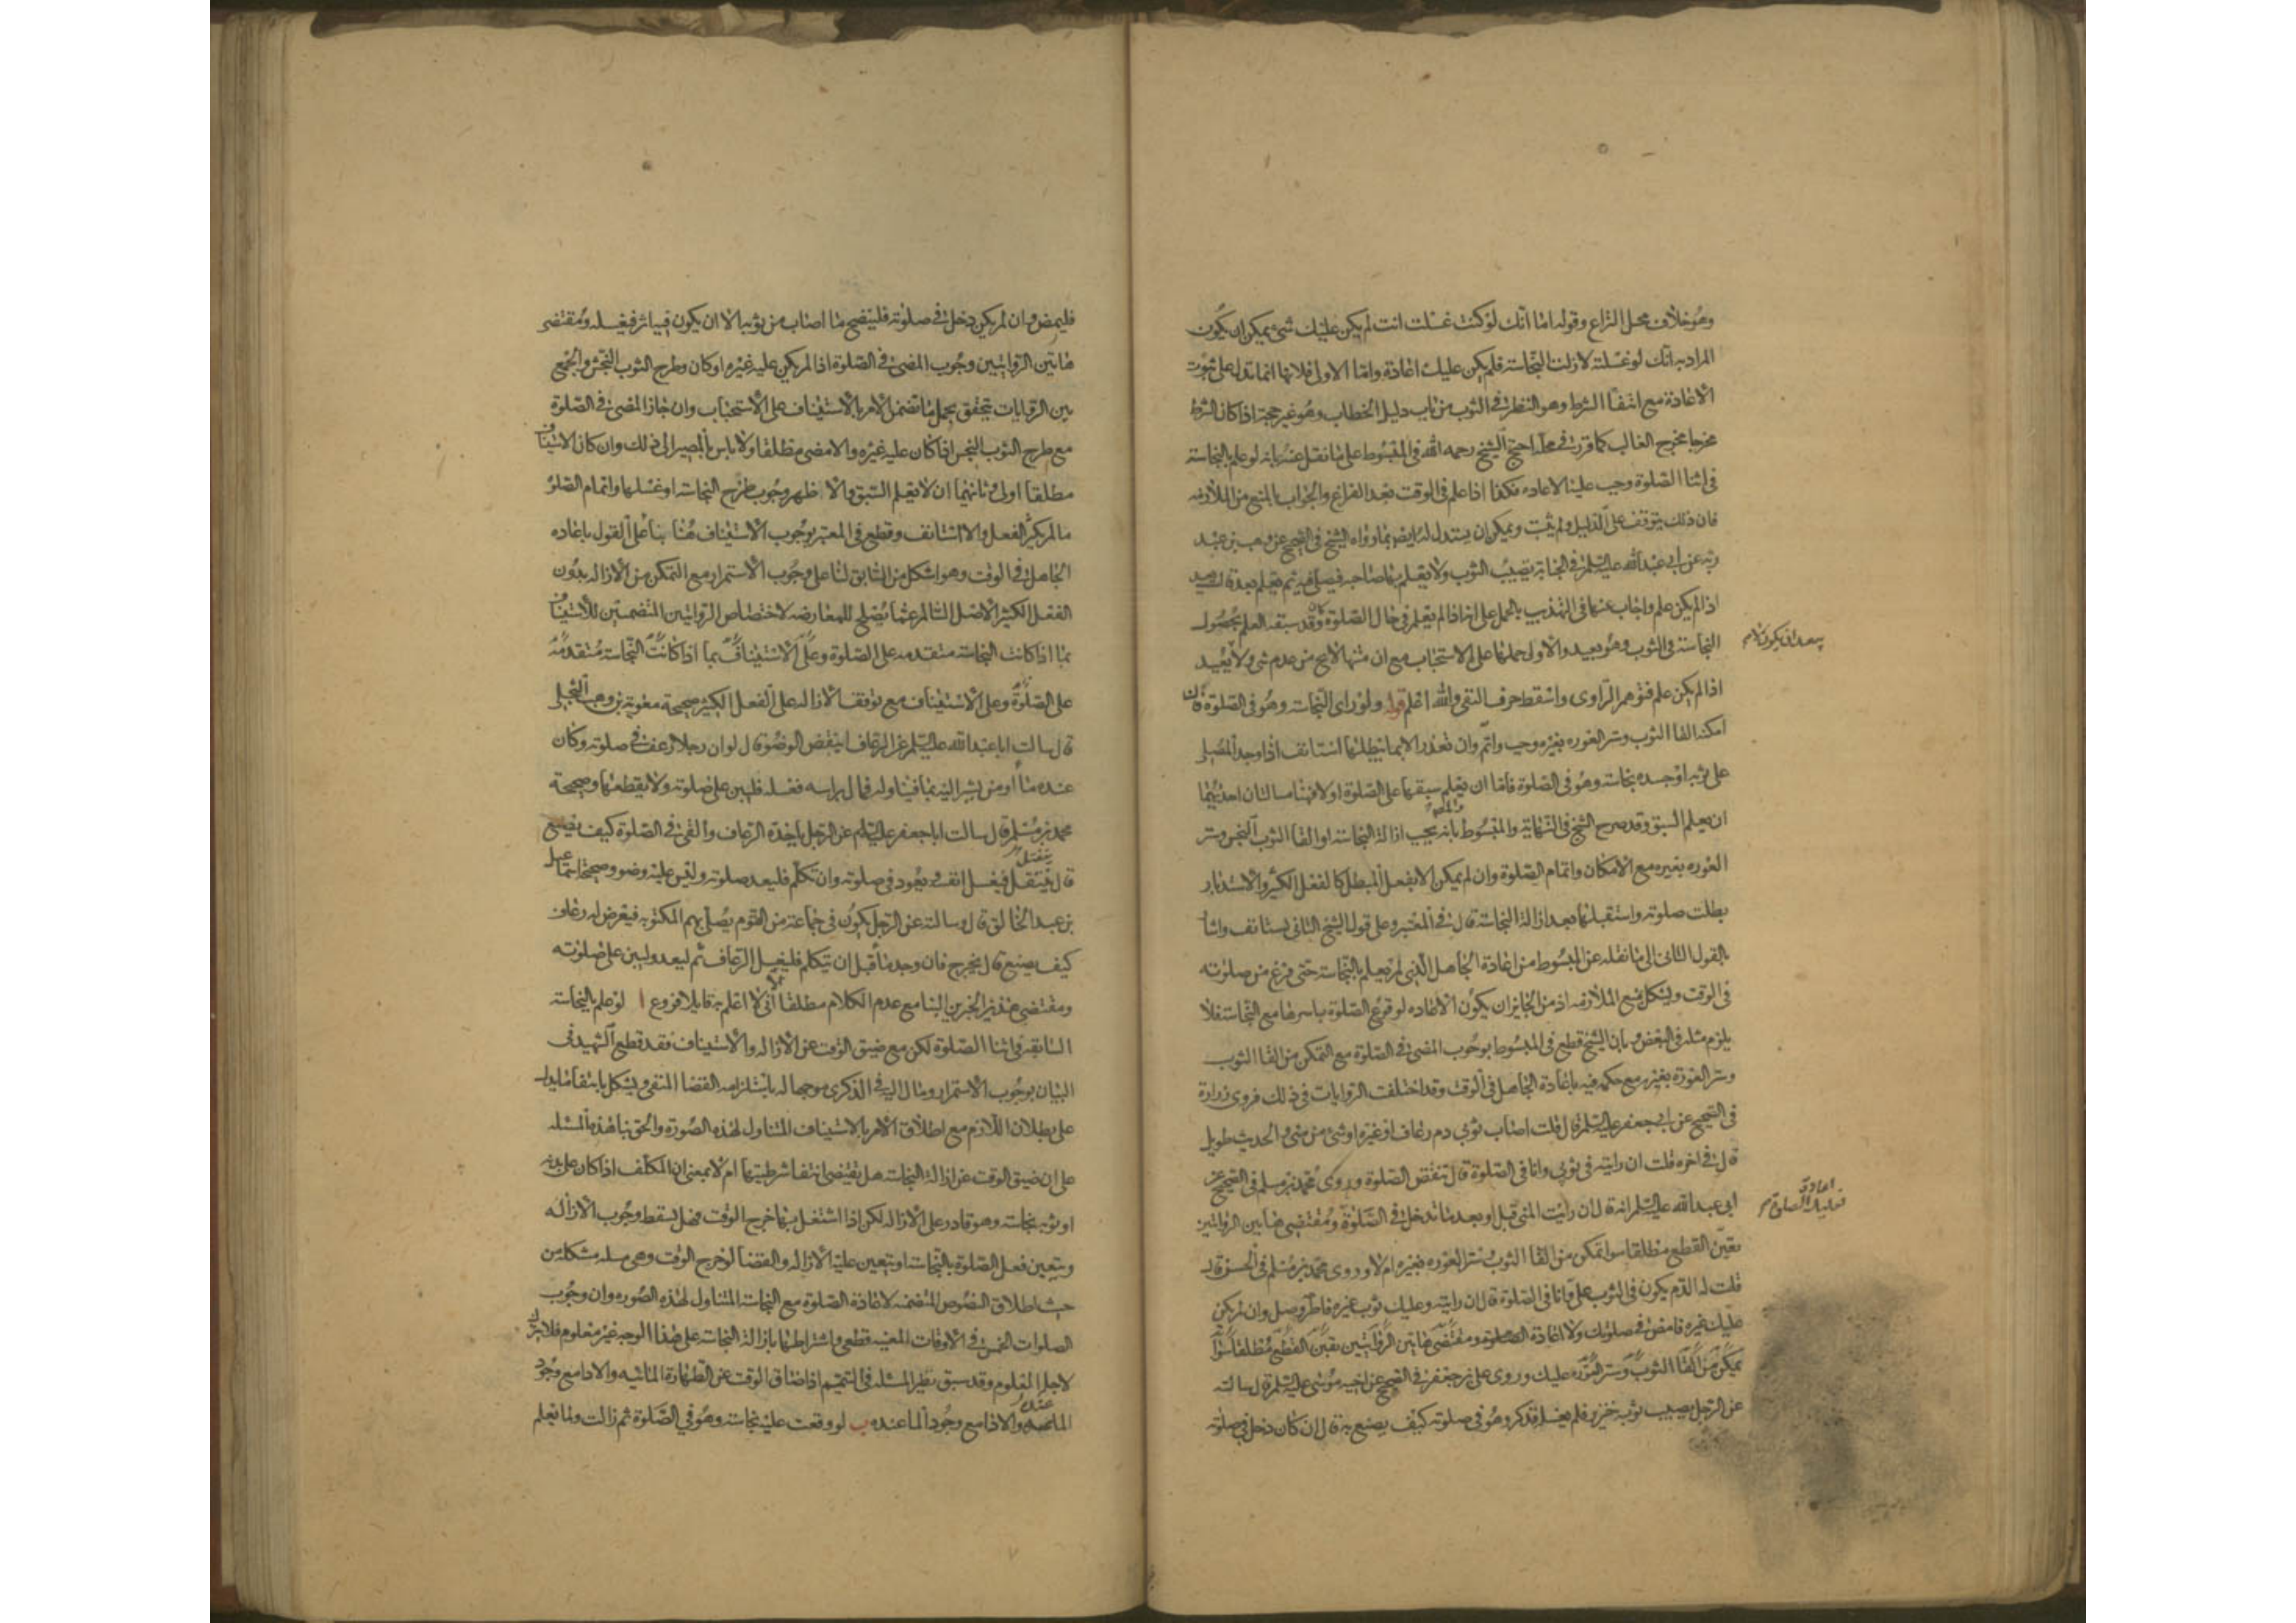 وهو خلاف محل النزاع وقوله اما انك لو كنت غسلت انت لم يكن عليك شئ يمكن ان يكون
المراد به انك لو غسلته لازلت النجاسة فلم يكن عليك اعادة واما الاولى فلانها انما تدل على ثبوت
الاعادة مع انتفا الشرط وهو النظر في الثوب من باب دليل الخطاب وهو غير حجة اذا كان الشرط
مخرجا مخرج الغالب كما قررت في محله احتج الشيخ رحمه الله في المبسوط على ما نقل عنه بانه لو علم بالنجاسة
في اثنا الصلوة وجب عليه الاعاده فكذا اذا علم في الوقت بعد الفراغ والجواب بالمنع من الملازمه
فان ذلك يتوقف على الدليل ولم يثبت ويمكن ان يستدل له ايض بما رواه الشيخ في الصحيح عن وهب بن عبد
ربه عن ابي عبد الله عليه السلم في الجنابة تصيب الثوب ولا يعلم بها صاحبه فيصلى فيه ثم يعلم بعد قال يعيد
اذا لم يكن علم واجاب عنها في التهذيب بالحمل على انه اذا لم يعلم في حال الصلوة وكان قد سبقه العلم بحصول
النجاسة في الثوب وهو بعيد والاولى حملها على الاستحباب مع ان متنها لا يخ من عدم شى ولا يعيد
يبعد ان يكون كلام
اذا لم يكن علم فتوهم الراوى واسقط حرف النفى والله اعلم قوله ولو راى النجاسة وهو في الصلوة فان
امكنه القا الثوب وستر العوره بغيره وجب واتم وان تعذر الا بما يبطلها استانف اذا وجد المصلى
على ثوبه او جسده نجاسة وهو في الصلوة فاما ان يعلم سبقها على الصلوة او لا فهنا مسالتان احديهما
ان يعلم السبق وقد صرح الشيخ في النهاية والمبسوط بانه يجب ازالة النجاسة او القا الثوب النجس وستر
العوره بغيره مع الامكان واتمام الصلوة وان لم يمكن الا بفعل المبطل كالفعل الكثير والاستدبار
بطلت صلوته واستقبلها بعد ازالة النجاسة قال في المعتبر وعلى قول الشيخ الثانى يستانف واشا
بالقول الثانى الى ما نقله عن المبسوط من اعادة الجاهل الذى لم يعلم بالنجاسة حتى فرغ من صلوته
في الوقت ويشكل بمنع الملازمه اذ من الجايز ان يكون الاعاده لوقوع الصلوة باسرها مع النجاسة فلا
يلزم مثله في البعض بان الشيخ قطع في المبسوط بوجوب المضى في الصلوة مع التمكن من القا الثوب
وستر العورة بغيره مع حكمه فيه باعادة الجاهل في الوقت وقد اختلفت الروايات في ذلك فروى زرارة
في الصحيح عن ابي جعفر عليه السلم قال قلت اصاب ثوبى دم رعاف او غيره او شى من منى والحديث طويل
قال في اخره قلت ان رايته في ثوبى وانا في الصلوة قال تنقض الصلوة وروى محمد بن مسلم في الصحيح عن
ابى عبد الله عليه السلم انه قال ان رايت المنى قبل او بعد ما تدخل في الصلوة ومقتضى هاتين الروايتين
فعليك اعادة الصلوة
تعين القطع مطلقا سوا تمكن من القا الثوب وستر العوره بغيره ام لا وروى محمد بن مسلم في الحسن قال
قلت له الدم يكون في الثوب على وانا في الصلوة قال ان رايته وعليك ثوب غيره فاطرحه وصل وان لم يكن
عليك غيره فامض في صلوتك ولا اعادة ومقتضى هاتين الروايتين تعين القطع مطلقا سوا
تمكن من القا الثوب وستر العوره عليك وروى على بن جعفر في الصحيح عن اخيه موسى عليه السلم قال سالته
عن الرجل يصيب ثوبه خنزير فلم يغسله فذكر وهو في صلوته كيف يصنع به قال ان كان دخل في صلوته
فليمض وان لم يكن دخل في صلوته فلينضح ما اصاب من ثوبه الا ان يكون فيه اثر فيغسله ومقتضى
هاتين الروايتين وجوب المضى في الصلوة اذا لم يكن عليه غيره او كان وطرح الثوب النجس والجمع
بين الروايات يتحقق بحمل ما تضمن الامر بالاستيناف على الاستحباب وان جاز المضى في الصلوة
مع طرح الثوب النجس اذا كان عليه غيره والا مضى مطلقا ولا باس بالمصير الى ذلك وان كان الاستيناف
مطلقا اولى وثانيهما ان لا يعلم السبق والا ظهر وجوب طرح النجاسة او غسلها واتمام الصلوة
ما لم يكثر الفعل والا استانف وقطع في المعتبر بوجوب الاستيناف هنا بنا على القول باعاده
الجاهل في الوقت وهو اشكل من السابق لنا على وجوب الاستمرار مع التمكن من الازاله بدون
الفعل الكثير الاصل السالم عما يصلح للمعارضه لاختصاص الروايتين المتضمنتين للاستيناف
بما اذا كانت النجاسة متقدمه على الصلوة وعلى الاستيناف بما اذا كانت النجاسة متقدمة
على الصلوة وعلى الاستيناف مع توقف الازاله على الفعل الكثير صحيحة معوية بن وهب البجلى
قال سالت ابا عبد الله عليه السلم عن الرعاف اينقض الوضوء قال لو ان رجلا رعف في صلوته وكان
عنده ماء او من يشير اليه بماء فيناوله فمال براسه فغسله فليبن على صلوته ولا يقطعها وصحيحة
محمد بن مسلم قال سالت ابا جعفر عليه السلم عن الرجل ياخذه الرعاف والقى في الصلوة كيف يصنع
قال ينفتل فيغسل انفه ويعود في صلوته وان تكلم فليعد صلوته وليس عليه وضوء وصحيحة اسماعيل
بن عبد الخالق قال وسالته عن الرجل يكون في جماعة من القوم يصلى بهم المكتوبه فيعرض له رعاف
كيف يصنع قال يخرج فان وجد ماء قبل ان يتكلم فليغسل الرعاف ثم ليعد وليبن على صلوته
ومقتضى هذين الخبرين البنا مع عدم الكلام مطلقا لا اعلم به قايلا فروع ا لو علم بالنجاسة
السابقه في اثنا الصلوة لكن مع ضيق الوقت عن الازاله والاستيناف فقد قطع الشهيد في
البيان بوجوب الاستمرار ومال اليه في الذكرى موجها له باستلزامه القضا المنفى ويشكل بانتفا ما يدل
على بطلان اللازم مع اطلاق الامر بالاستيناف المتناول لهذه الصورة والحق بنا هذه المسئله
على ان ضيق الوقت عن ازالة النجاسة هل يقتضى انتفا شرطيتها ام لا بمعنى ان المكلف اذا كان على بدنه
او ثوبه نجاسة وهو قادر على الازاله لكن اذا اشتغل بها خرج الوقت فهل يسقط وجوب الازاله
ويتعين فعل الصلوة بالنجاسة او يتعين عليه الازاله والقضا لو خرج الوقت وهى مسله مشكله من
حيث اطلاق النصوص المتضمنه لاعادة الصلوة مع النجاسة المتناول لهذه الصوره وان وجوب
الصلوات الخمس في الاوقات المعينه قطعى واشتراطها بازالة النجاسة على هذا الوجه غير معلوم فلا يترك
لاجله المعلوم وقد سبق نظير المسئله في التيمم اذا ضاق الوقت عن الطهارة المائيه والادا مع وجود
الما عنده والادا مع وجود الما عنده ب لو وقعت عليه نجاسة وهو في الصلوة ثم زالت ولما يعلم